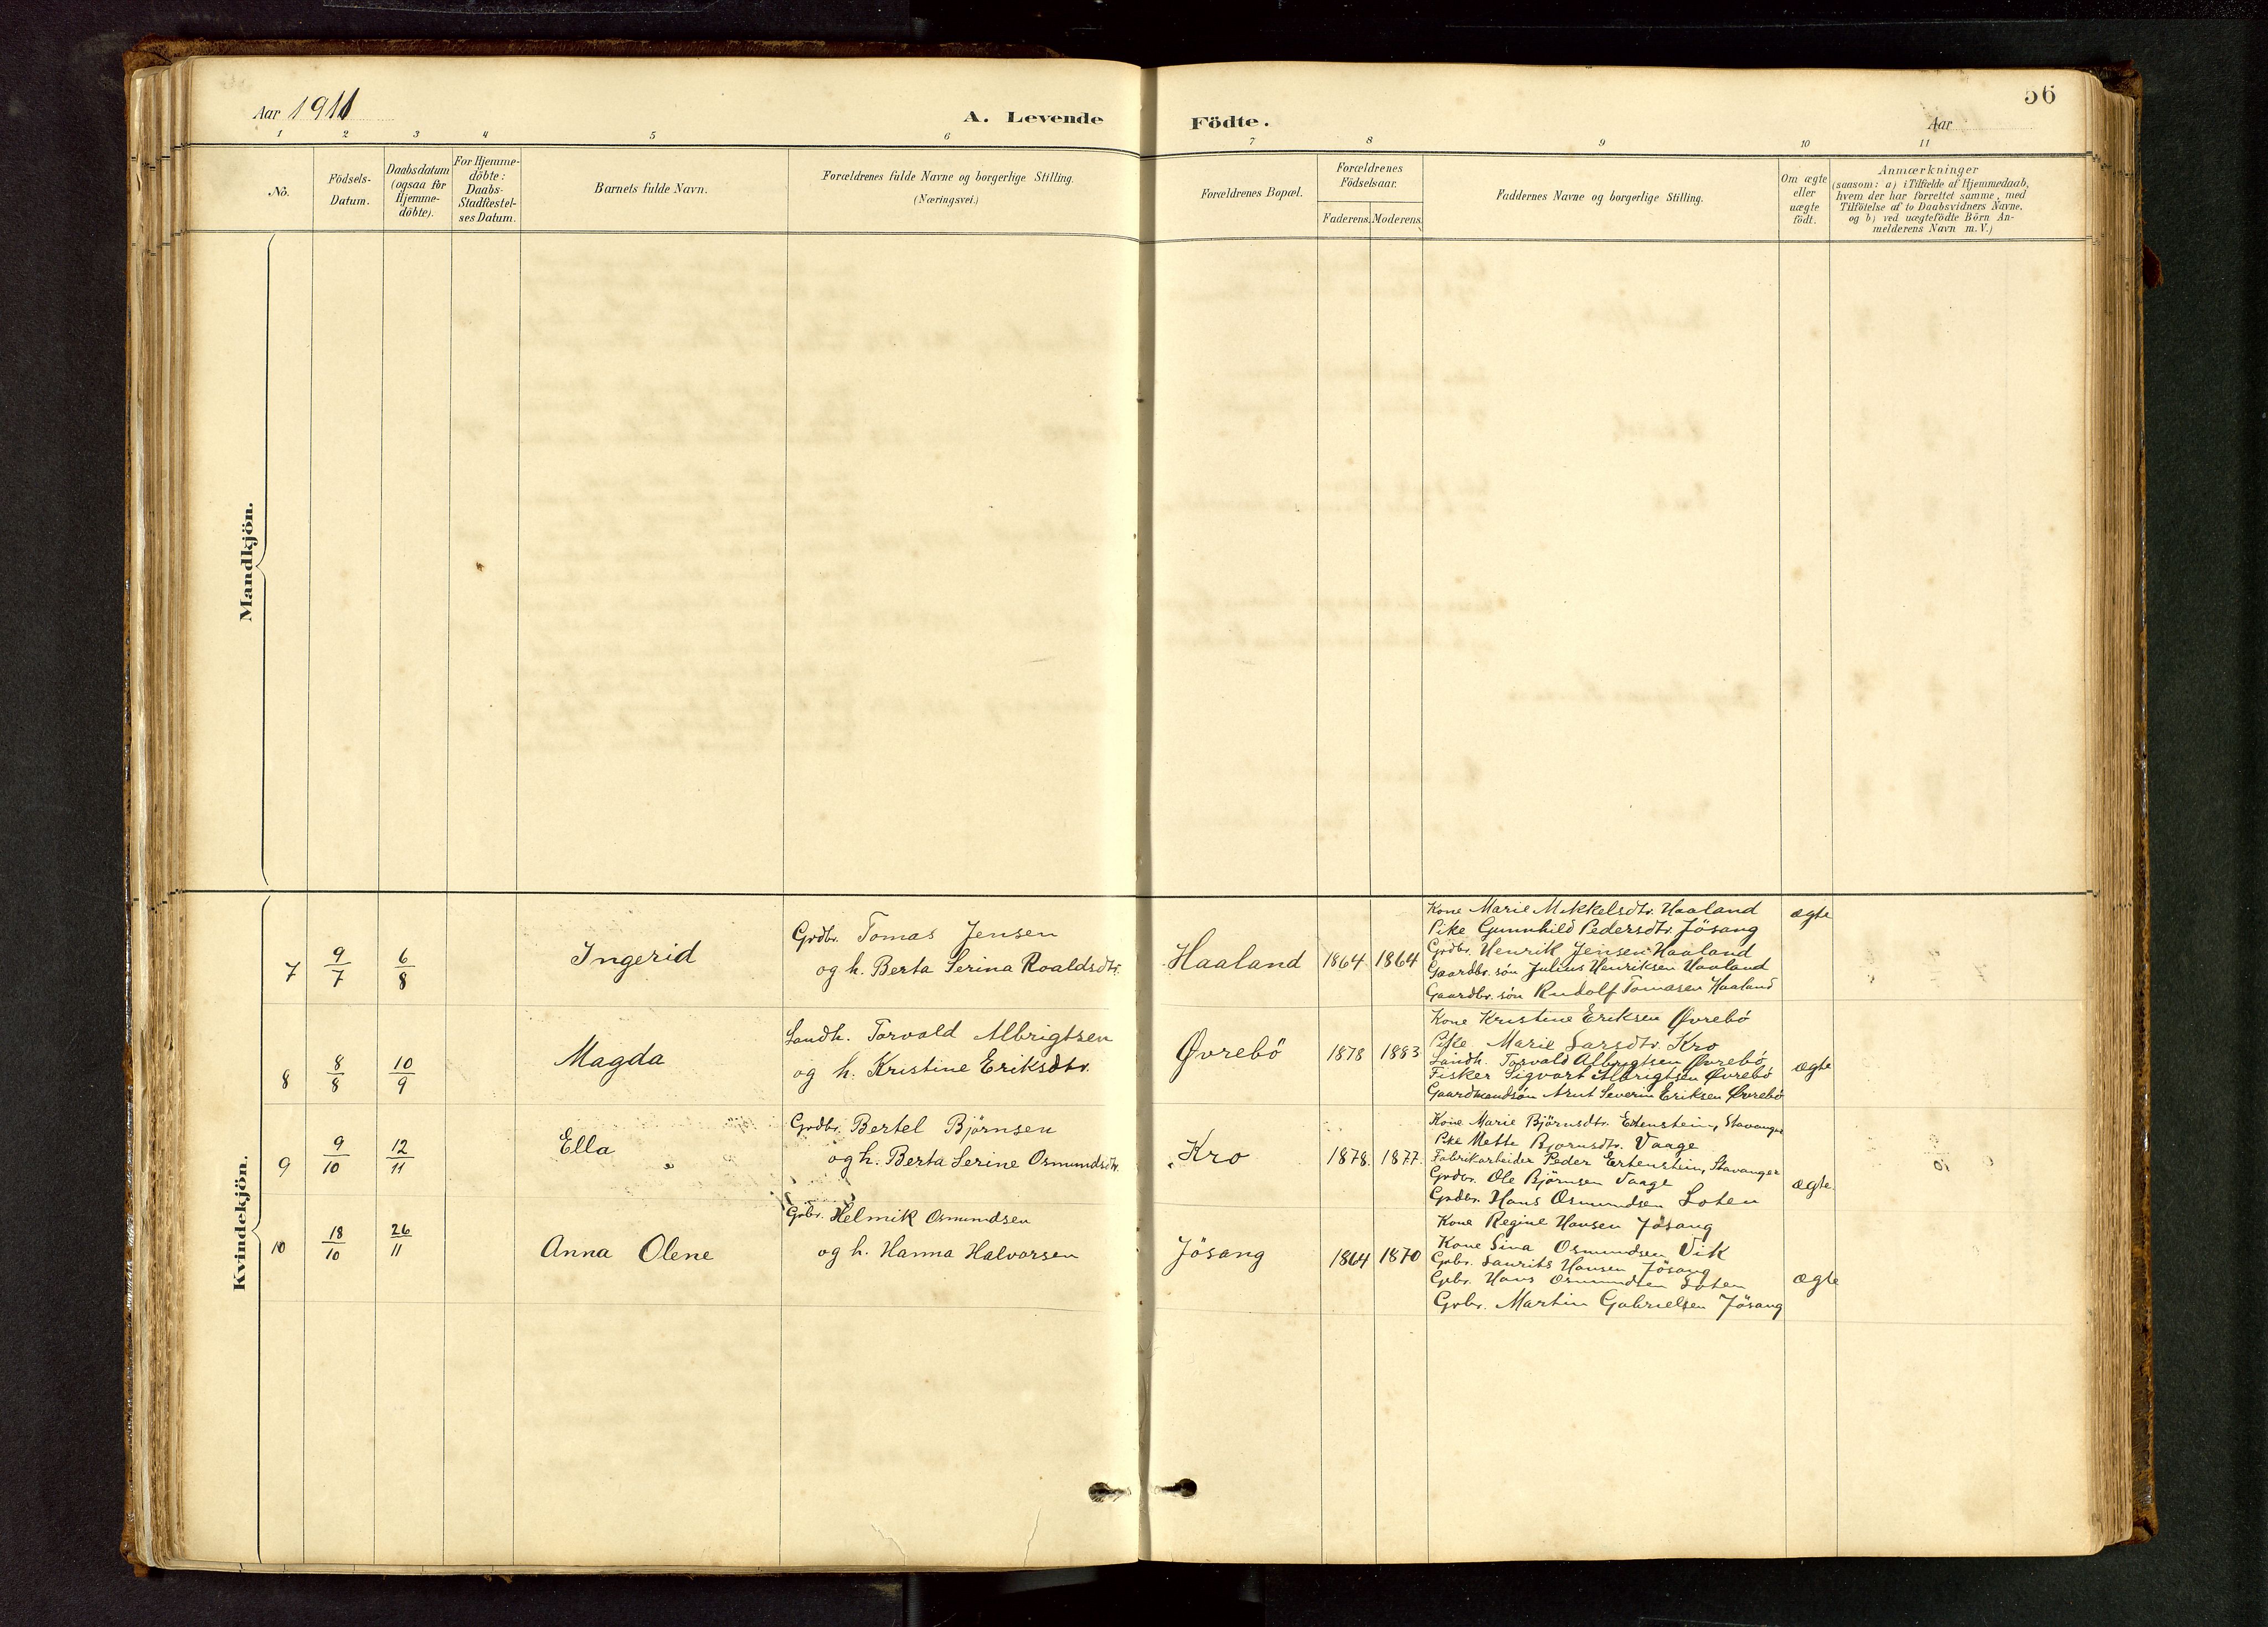 56
Aar 1911
A. Levende Födte.
Aar
1 2 3 4 5 6 7 8 9 10 11
No.
Födsels-
Datum.
Daabsdatum
(ogsaa for
Hjemme-
döbte).
For Hjemme-
döbte:
Daabs-
Stadfæstel-
ses Datum.
Barnets fulde Navn.
Forældrenes fulde Navne og borgerlige Stilling.
(Næringsvei.)
Forældrenes Bopæl.
Forældrenes
Födselsaar.
Faderens. Moderens.
Faddernes Navne og borgerlige Stilling.
Om ægte
eller
uægte
födt.
Anmærkninger
(saasom: a) i Tilfælde af Hjemmedaab,
hvem der har forrettet samme, med
Tilföielse af to Daabsvidners Navne,
og b) ved uægtefödte Börn An-
melderens Navn m. V.)
Mandkjön.
Kvindekjön.
7
9/7
6/8
Ingerid
Grdbr. Tomas Jensen
og h. Berta Serina Roaldsdtr.
Haaland
1864 1864
Kone Marie Mikkelsdtr. Haaland
Pike Gunnhild Pedersdtr. Jösang
Grdbr. Henrik Jensen Haaland
Gaardbr. søn Julius Henriksen Haaland
Gaardbr. søn Rudolf Tomasen Haaland
ægte
8
8/8
10/9
Magda
Landh. Torvald Albrigtsen
og h. Kristine Eriksdtr.
Øvrebö
1878 1883
Kone Kristine Eriksen Øvrebö
Pike Marie Larsdtr. Kro
Landh. Torvald Albrigtsen Øvrebö
Fisker Sigvart Albrigtsen Øvrebö
Gaardmandsøn Arnt Severin Eriksen Øvrebö
ægte
9
9/10
12/11
Ella
Grdbr. Bertel Björnsen
og h. Berta Serine Osmundsdtr.
Kro
1878. 1877.
Kone Marie Björnsdtr. Ertenstein, Stavanger
Pike Mette Bjornsdtr. Vaage
Fabrikarbeider Peder Ertenstein, Stavanger
Grdbr. Ole Björnsen Vaage
Grdbr. Hans Osmundsen Loten
ægte.
10
18/10
26/11
Anna Olene
Gbr. Helmik Osmundsen
og h. Hanna Halvorsen
Jösang
1864 1870
Kone Regine Hansen Jösang
Kone Sina Osmundsen Vik
Gbr. Laurits Hansen Jösang
Gbr. Hans Osmundsen Loten
Gbr. Martin Gabrielsen Jösang
ægte